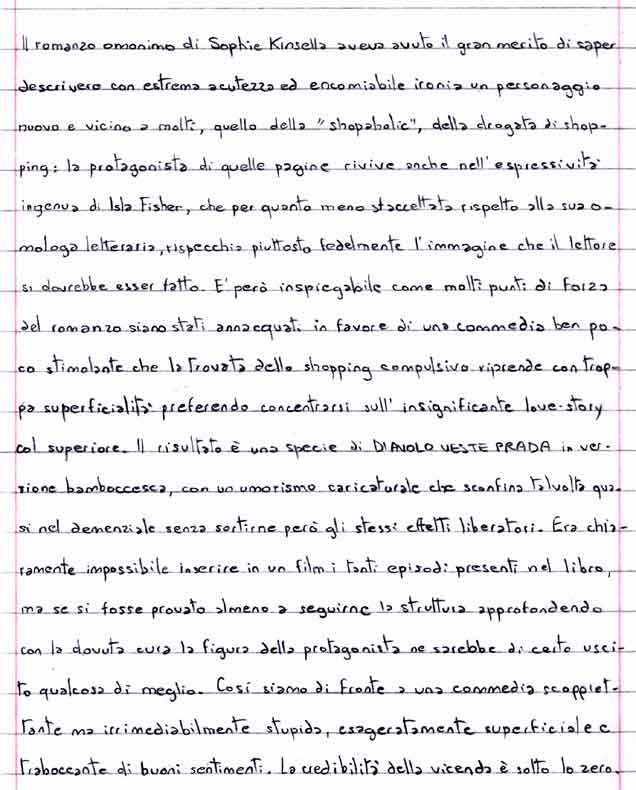 Il romanzo omonimo di Sophie Kinsella aveva avuto il gran merito di saper
descrivere con estrema acutezza ed encomiabile ironia un personaggio
nuovo e vicino a molti, quello della "shopaholic", della drogata di shop-
ping: la protagonista di quelle pagine rivive anche nell'espressività
ingenua di Isla Fisher, che per quanto meno sfaccettata rispetto alla sua o-
mologa letteraria, rispecchia piuttosto fedelmente l'immagine che il lettore
si dovrebbe esser fatto. E' però inspiegabile come molti punti di forza
del romanzo siano stati annacquati in favore di una commedia ben po-
co stimolante che la trovata dello shopping compulsivo riprende con trop-
pa superficialità preferendo concentrarsi sull'insignificante love-story
col superiore. Il risultato è una specie di DIAVOLO VESTE PRADA in ver-
sione bamboccesca, con un umorismo caricaturale che sconfina talvolta qua-
si nel demenziale senza sortirne però gli stessi effetti liberatori. Era chia-
ramente impossibile inserire in un film i tanti episodi presenti nel libro,
ma se si fosse provato almeno a seguirne la struttura approfondendo
con la dovuta cura la figura della protagonista ne sarebbe di certo usci-
to qualcosa di meglio. Così siamo di fronte a una commedia scoppiet-
tante ma irrimediabilmente stupida, esageratamente superficiale e
traboccante di buoni sentimenti. La credibilità della vicenda è sotto lo zero.